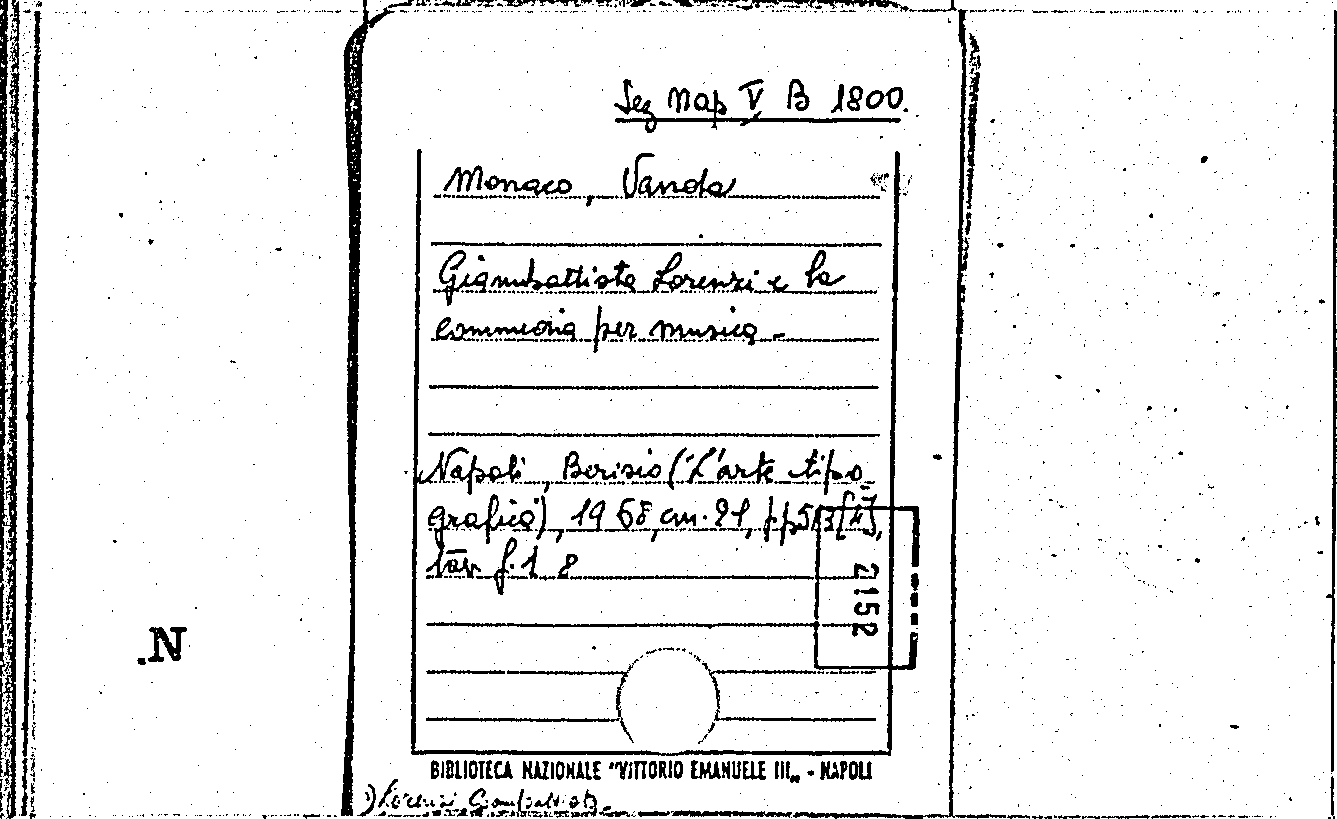 Sez Nap V B 1800.
Monaco, Vanda
Giambattista Lorenzi e la
commedia per musica -
Napoli, Berisio (L'arte tipo
grafica), 1968, cm. 21, pp
tav f. t. 8
2152
.N
BIBLIOTECA NAZIONALE "VITTORIO EMANUELE III„ - NAPOLI
) Lorenzi Giambattista.